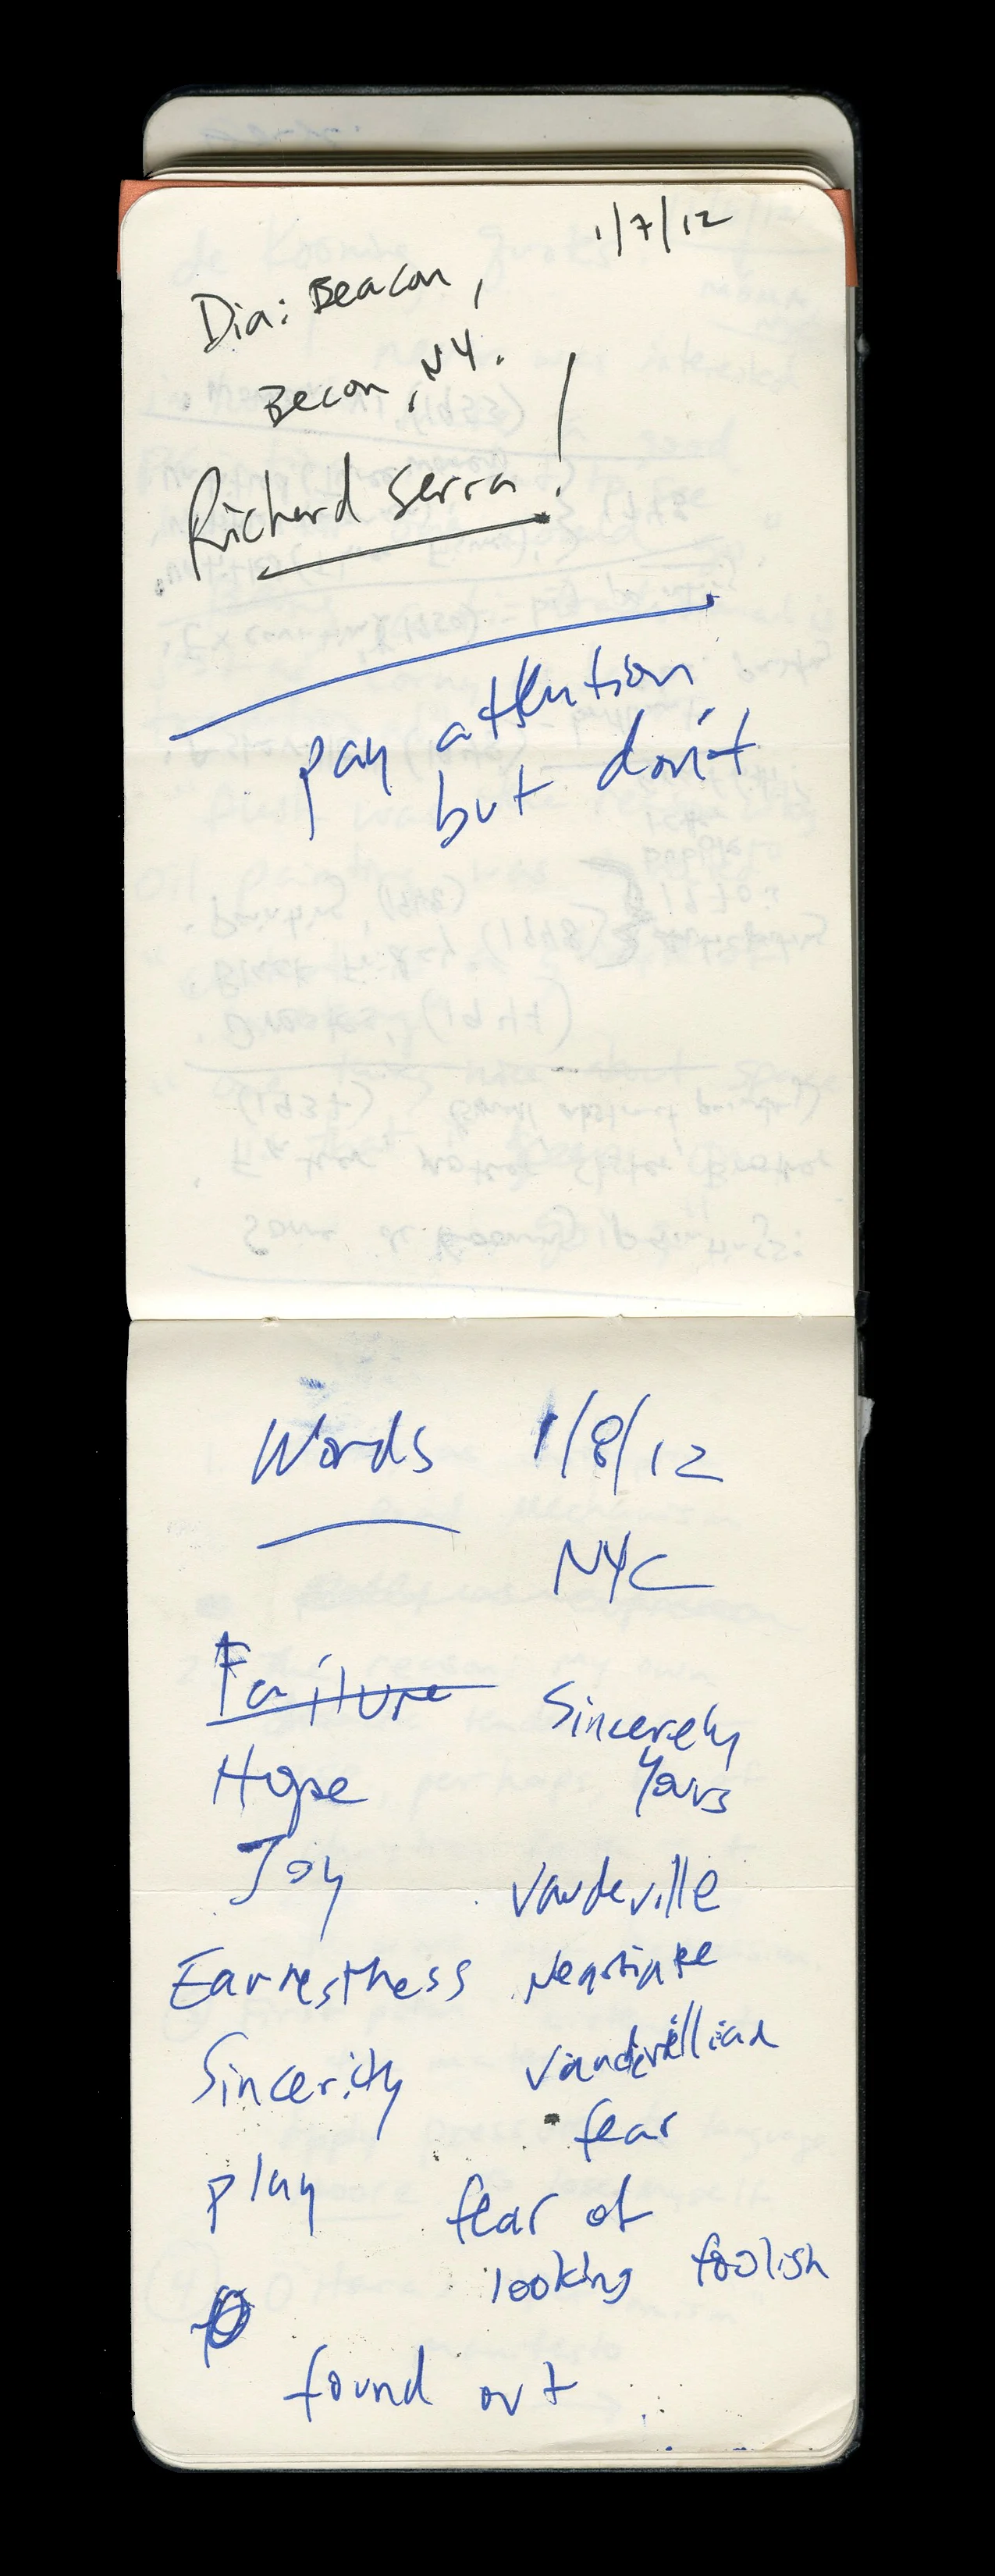 1/7/12
Dia: Beacon,
Becon, NY.
Richard Serra!
pay attention
but don't
Words 1/8/12
NYC
Failure
Sincerely
Hope
Yours
Joy
Vaudeville
Earnesthess Negotiate
Sincerity Vaudevillian
fear
play
fear of
looking foolish
found out